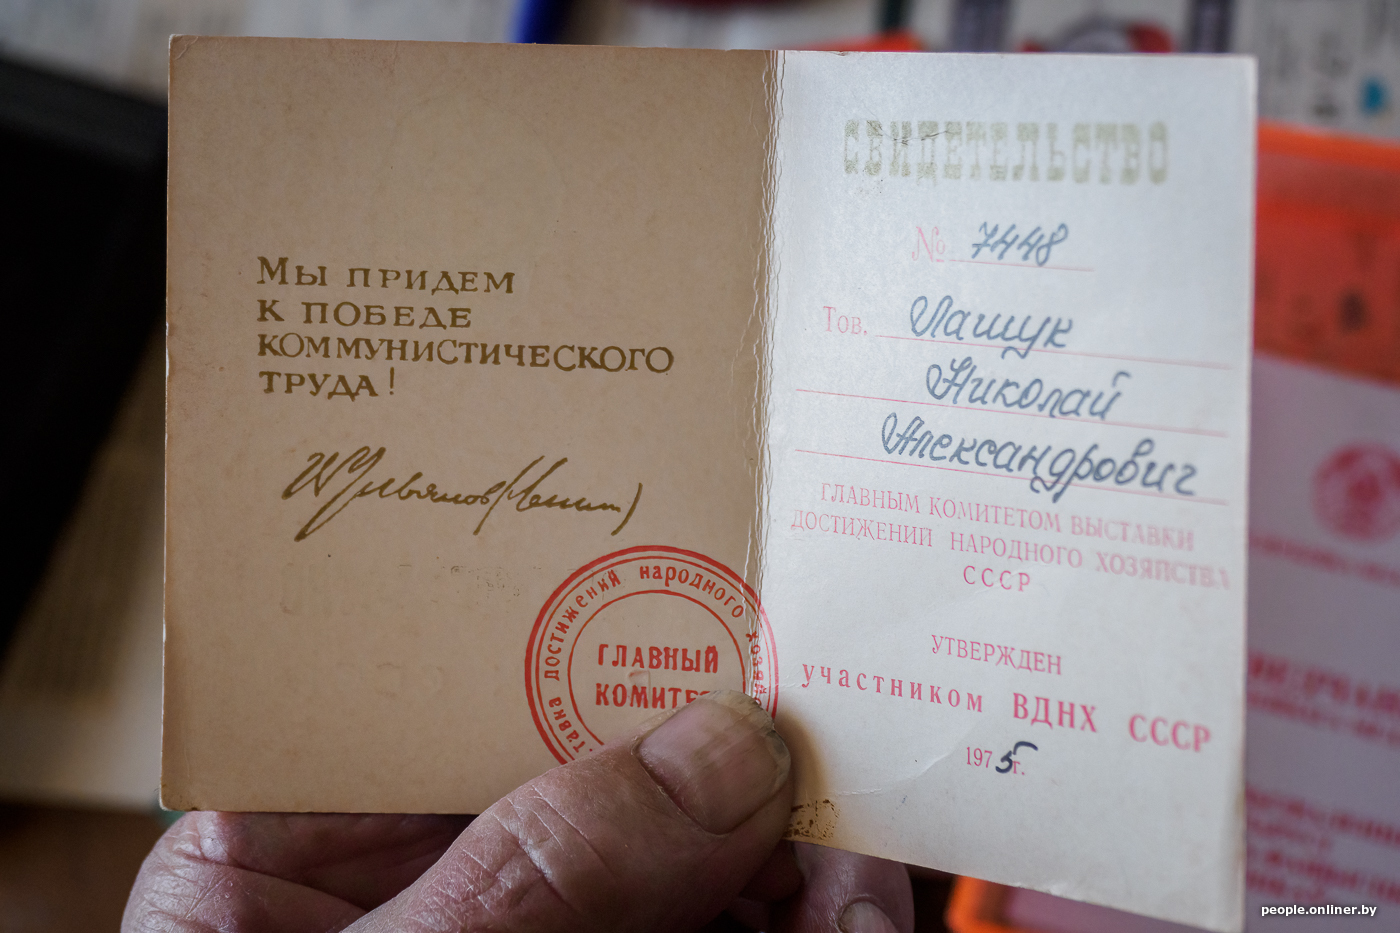 Мы придем
к победе
коммунистического
труда!
В Ульянов (Ленин)
достижений народного
ГЛАВНЫЙ
СВИДЕТЕЛЬСТВО
№ 7448
Тов. Лащук
Николай
Александрович
ГЛАВНЫМ КОМИТЕТОМ ВЫСТАВКИ
ДОСТИЖЕНИЙ НАРОДНОГО ХОЗЯЙСТВА
СССР
УТВЕРЖДЕН
участником ВДНХ СССР
1975г.
people.onliner.by